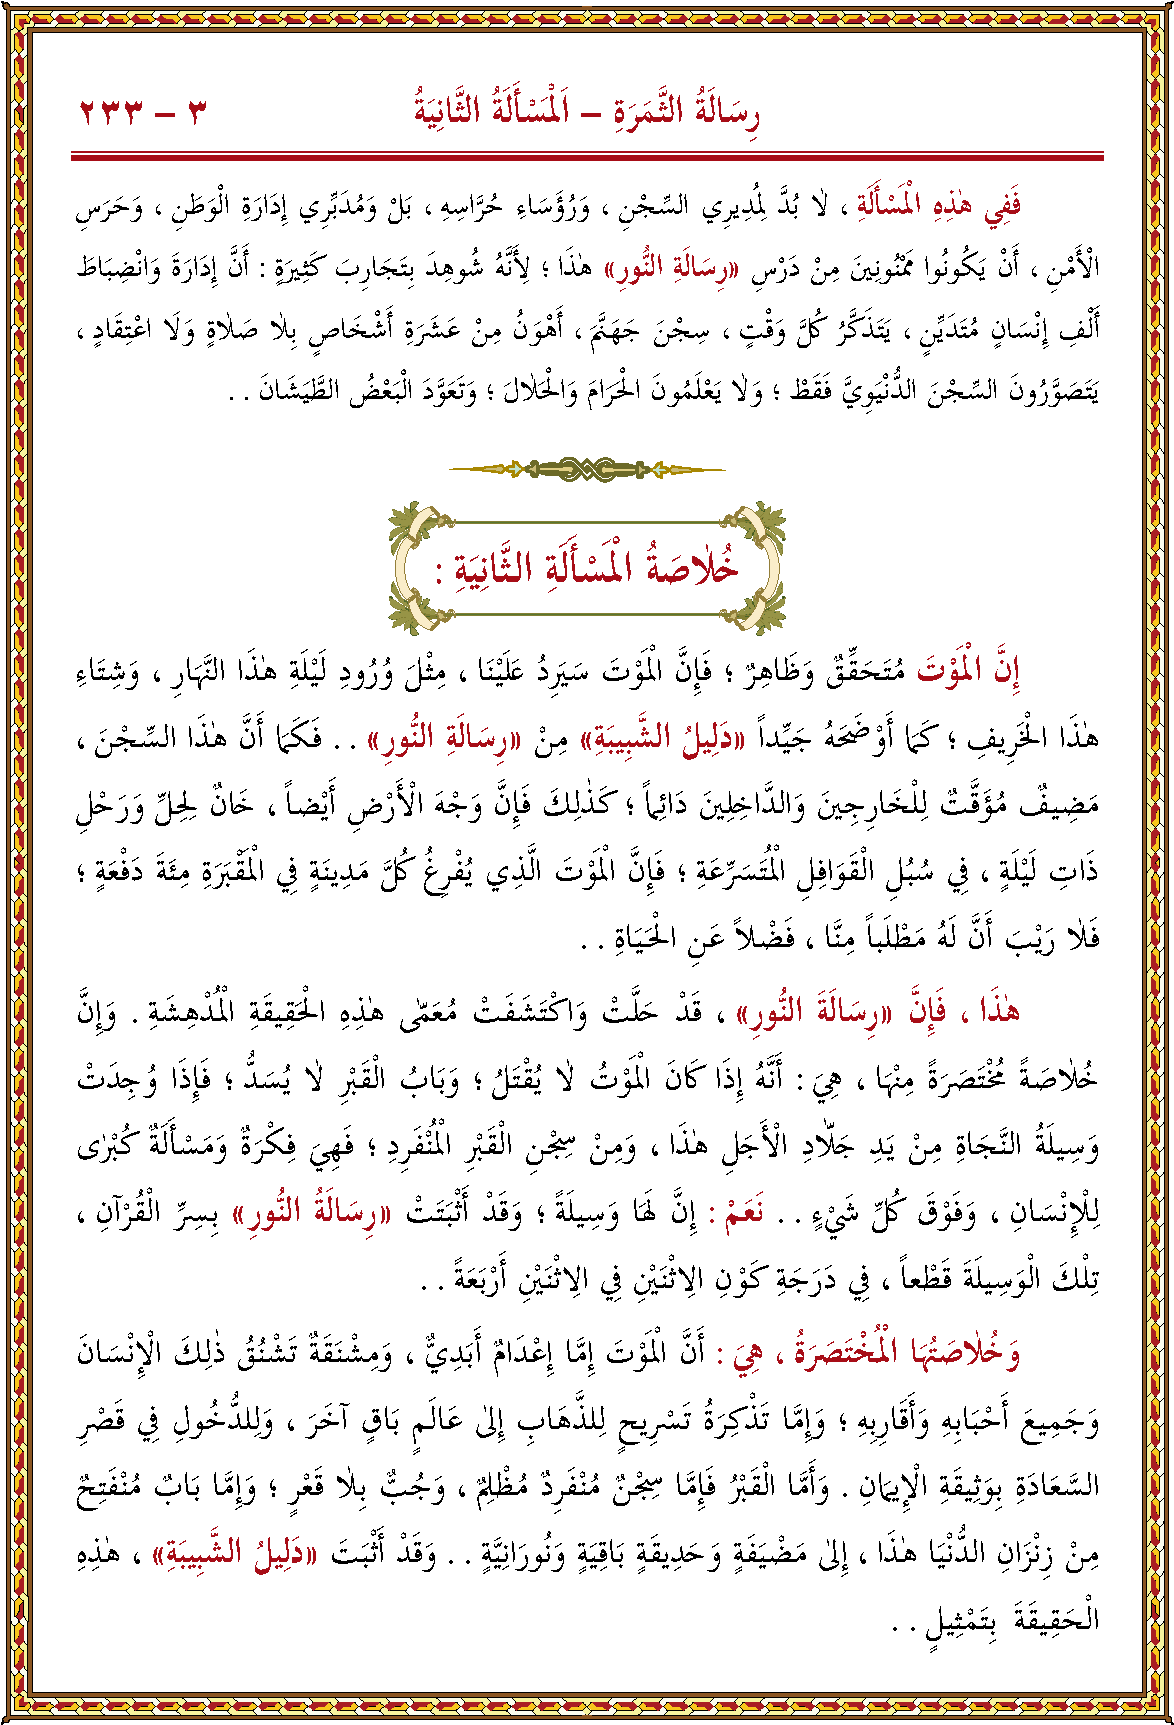 رِسَالَةُ الثَّمَرَةِ – اَلْمَسْأَلَةُ الثَّانِيَةُ
٣ – ٢٣٣
فَفِي هٰذِهِ الْمَسْأَلَةِ ، لاٰ بُدَّ لِمُدِيرِي السِّجْنِ ، وَرُؤَسَاءِ حُرَّاسِهِ ، بَلْ وَمُدَبِّرِي إِدَارَةِ الْوَطَنِ ، وَحَرَسِ
الْأَمْنِ ، أَنْ يَكُونُوا مَمْنُونِينَ مِنْ دَرْسِ «رِسَالَةِ النُّورِ» هٰذَا ؛ لِأَنَّهُ شُوهِدَ بِتَجَارِبَ كَثِيرَةٍ : أَنَّ إِدَارَةَ وَانْضِبَاطَ
أَلْفِ إِنْسَانٍ مُتَدَيِّنٍ ، يَتَذَكَّرُ كُلَّ وَقْتٍ ، سِجْنَ جَهَنَّمَ ، أَهْوَنُ مِنْ عَشَرَةِ أَشْخَاصٍ بِلاٰ صَلاٰةٍ وَلَا اعْتِقَادٍ ،
يَتَصَوَّرُونَ السِّجْنَ الدُّنْيَوِيَّ فَقَطْ ؛ وَلاٰ يَعْلَمُونَ الْحَرَامَ وَالْحَلاٰلَ ؛ وَتَعَوَّدَ الْبَعْضُ الطَّيَشَانَ . .
خُلاٰصَةُ الْمَسْأَلَةِ الثَّانِيَةِ :
إِنَّ الْمَوْتَ مُتَحَقِّقٌ وَظَاهِرٌ ؛ فَإِنَّ الْمَوْتَ سَيَرِدُ عَلَيْنَا ، مِثْلَ وُرُودِ لَيْلَةِ هٰذَا النَّهَارِ ، وَشِتَاءِ
هٰذَا الْخَرِيفِ ؛ كَمَا أَوْضَحَهُ جَيِّداً «دَلِيلُ الشَّبِيبَةِ» مِنْ «رِسَالَةِ النُّورِ» . . فَكَمَا أَنَّ هٰذَا السِّجْنَ ،
مَضِيفٌ مُؤَقَّتٌ لِلْخَارِجِينَ وَالدَّاخِلِينَ دَائِماً ؛ كَذٰلِكَ فَإِنَّ وَجْهَ الْأَرْضِ أَيْضاً ، خَانٌ لِحِلِّ وَرَحْلِ
ذَاتِ لَيْلَةٍ ، فِي سُبُلِ الْقَوَافِلِ الْمُتَسَرِّعَةِ ؛ فَإِنَّ الْمَوْتَ الَّذِي يُفْرِغُ كُلَّ مَدِينَةٍ فِي الْمَقْبَرَةِ مِئَةَ دَفْعَةٍ ؛
فَلاٰ رَيْبَ أَنَّ لَهُ مَطْلَباً مِنَّا ، فَضْلاً عَنِ الْحَيَاةِ . .
هٰذَا ، فَإِنَّ «رِسَالَةَ النُّورِ» ، قَدْ حَلَّتْ وَاكْتَشَفَتْ مُعَمّٰى هٰذِهِ الْحَقِيقَةِ الْمُدْهِشَةِ . وَإِنَّ
خُلاٰصَةً مُخْتَصَرَةً مِنْهَا ، هِيَ : أَنَّهُ إِذَا كَانَ الْمَوْتُ لاٰ يُقْتَلُ ؛ وَبَابُ الْقَبْرِ لاٰ يُسَدُّ ؛ فَإِذَا وُجِدَتْ
وَسِيلَةُ النَّجَاةِ مِنْ يَدِ جَلّاٰدِ الْأَجَلِ هٰذَا ، وَمِنْ سِجْنِ الْقَبْرِ الْمُنْفَرِدِ ؛ فَهِيَ فِكْرَةٌ وَمَسْأَلَةٌ كُبْرٰى
لِلْإِنْسَانِ ، وَفَوْقَ كُلِّ شَيْءٍ . . نَعَمْ : إِنَّ لَهَا وَسِيلَةً ؛ وَقَدْ أَثْبَتَتْ «رِسَالَةُ النُّورِ» بِسِرِّ الْقُرْآنِ ،
تِلْكَ الْوَسِيلَةَ قَطْعاً ، فِي دَرَجَةِ كَوْنِ الاِثْنَيْنِ فِي الاِثْنَيْنِ أَرْبَعَةً . .
وَخُلاٰصَتُهَا الْمُخْتَصَرَةُ ، هِيَ : أَنَّ الْمَوْتَ إِمَّا إِعْدَامٌ أَبَدِيٌّ ، وَمِشْنَقَةٌ تَشْنُقُ ذٰلِكَ الْإِنْسَانَ
وَجَمِيعَ أَحْبَابِهِ وَأَقَارِبِهِ ؛ وَإِمَّا تَذْكِرَةُ تَسْرِيحٍ لِلذَّهَابِ إِلٰى عَالَمٍ بَاقٍ آخَرَ ، وَلِلدُّخُولِ فِي قَصْرِ
السَّعَادَةِ بِوَثِيقَةِ الْإِيمَانِ . وَأَمَّا الْقَبْرُ فَإِمَّا سِجْنٌ مُنْفَرِدٌ مُظْلِمٌ ، وَجُبٌّ بِلاٰ قَعْرٍ ؛ وَإِمَّا بَابٌ مُنْفَتِحٌ
مِنْ زِنْزَانِ الدُّنْيَا هٰذَا ، إِلٰى مَضْيَفَةٍ وَحَدِيقَةٍ بَاقِيَةٍ وَنُورَانِيَّةٍ . . وَقَدْ أَثْبَتَ «دَلِيلُ الشَّبِيبَةِ» ، هٰذِهِ
الْحَقِيقَةَ بِتَمْثِيلٍ . .